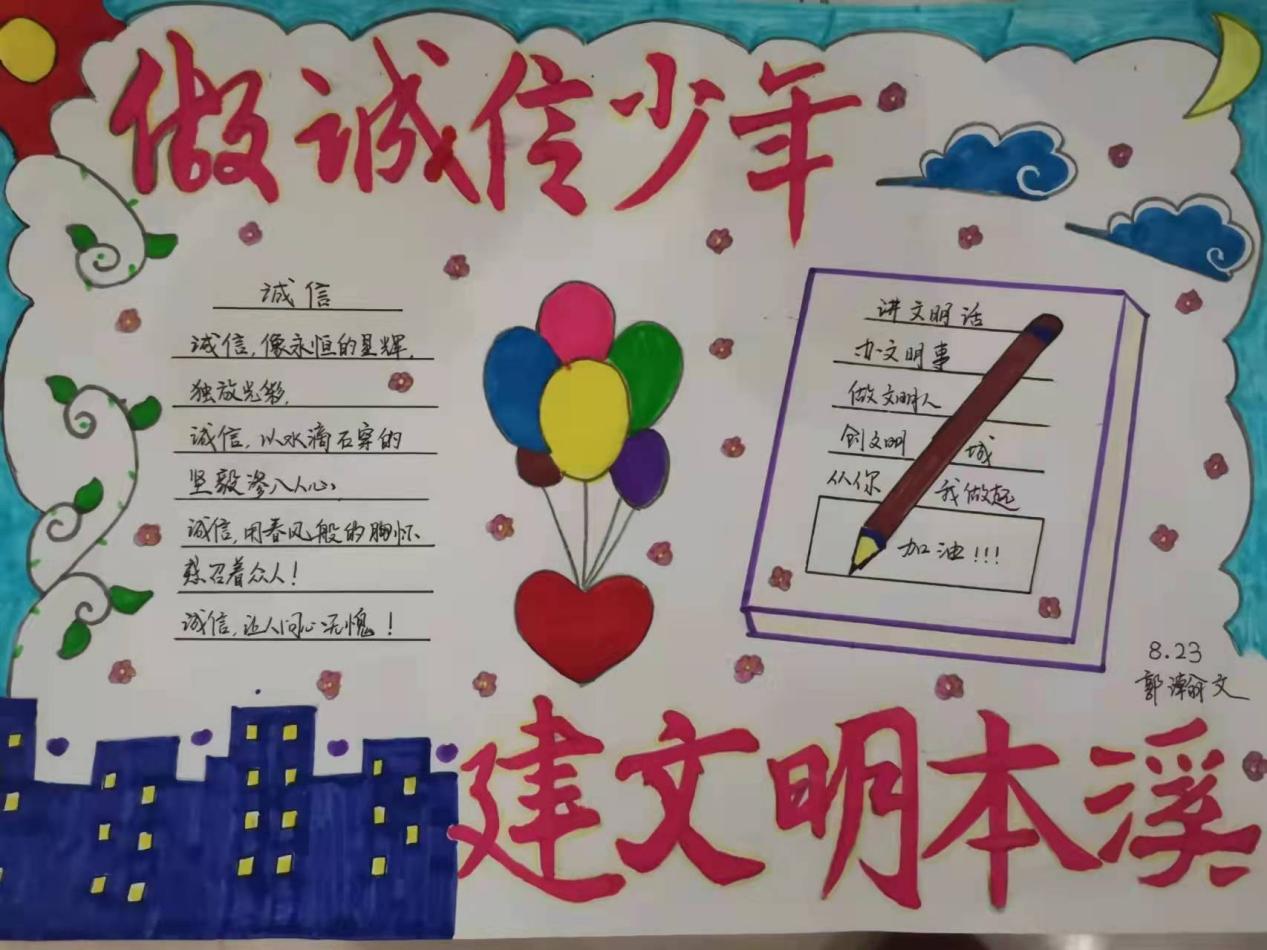 做诚信少年
诚信
诚信,像永恒的星辉,
独放光彩,
诚信,以水滴石穿的
坚毅渗入人心、
诚信,用春风般的胸怀、
感召着众人!
诚信,让人问心无愧!
讲文明话
办文明事
做文明人
创文明 城
从你 我做起
加油!!!
8.23
郭瀚文
建文明本溪